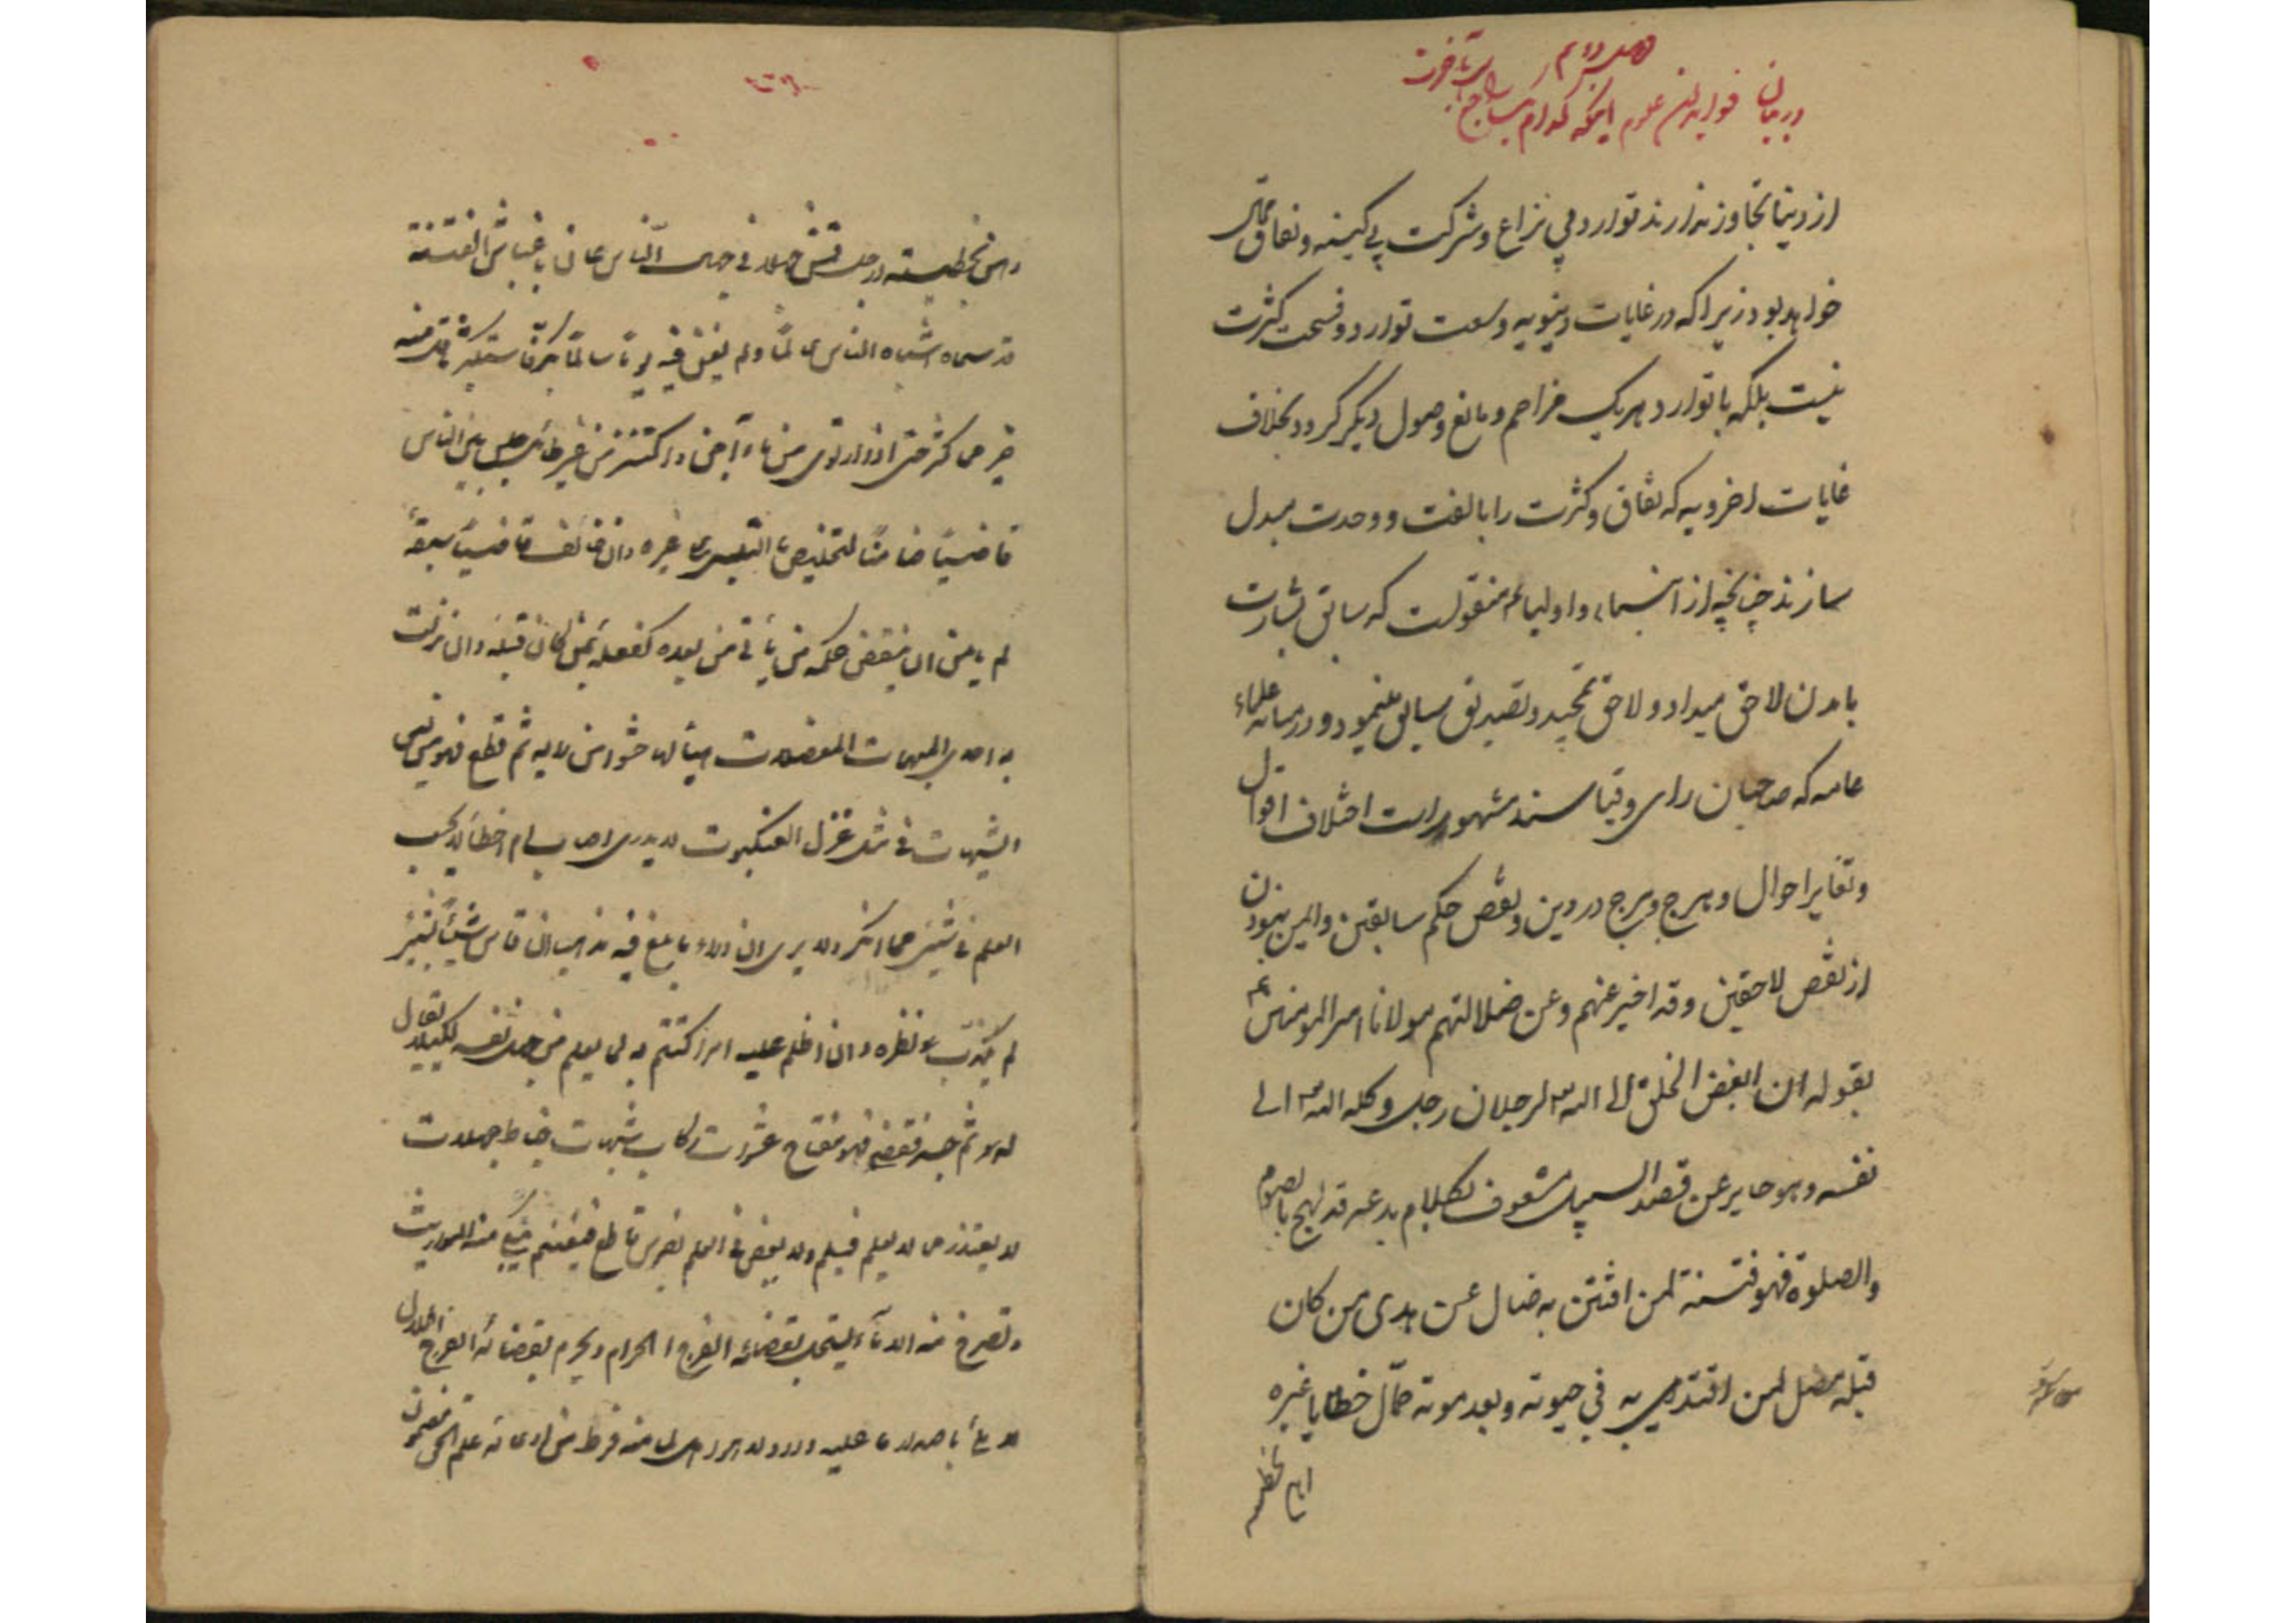 فصل دوم
در بیان فواید این علوم اینکه کدام
از دنیا تجاوز ندارند توارد بی نزاع و شرکت بی کینه و نفاق محال
خواهد بود زیرا که در غایات دنیویه وسعت توارد و فسحت کثرت
نیست بلکه با توارد هر یک مزاحم و مانع وصول دیگر گردد بخلاف
غایات اخرویه که نفاق و کثرت را بالفت و وحدت مبدل
سازند چنانچه از انبیاء و اولیا ع م منقولست که سابق بشارت
بامدن لاحق میداد و لاحق تمجید و تصدیق سابق مینمود و در میانه علماء
عامه که صاحبان رای و قیاسند مشهور است اختلاف اقوال
و تغایر احوال و هرج و مرج در دین و نقض حکم سابقین و ایمن نبودن
از نقض لاحقین و قد اخبر عنهم و عن ضلالتهم مولانا امیر المومنین ع م
بقوله ان ابغض الخلق الی الله لرجلان رجل وکله الله الی
نفسه و هو حایر عن قصد السبیل مشعوف بکلام بدعه قد لهج بالصوم
والصلوة فهو فتنة لمن افتتن به ضال عن هدی من کان
قبله مضل لمن اقتدی به فی حیوته و بعد موته حمال خطایا غیره
رهن بخطیئته و رجل قمش جهلا فی جهال الناس عان باغباش الفتنة
قد سماه اشباه الناس عالما و لم یغن فیه یوما سالما بکر فاستکثر ما قل منه
خیر مما کثر حتی اذا ارتوی من ماء آجن و اکتنز من غیر طائل جلس بین الناس
قاضیا ضامنا لتخلیص ما التبس علی غیره و ان خالف قاضیا سبقه
لم یامن ان ینقض حکمه من یأتی من بعده کفعله بمن کان قبله و ان نزلت
به احدی المبهمات المعضلات هیأ لها حشوا من رایه ثم قطع فهو من لبس
الشبهات فی مثل غزل العنکبوت لا یدری اصاب ام اخطأ لا یحسب
العلم فی شیئ مما انکر و لا یری ان وراء ما بلغ فیه مذهبا ان قاس شیئا بشیئ
لم یکذب نظره و ان اظلم علیه امر اکتتم به لما یعلم من جهل نفسه لکیلا یقال
له لا ثم جسر فقضی فهو مفتاح عشوات رکاب شبهات خباط جهالات
لا یعتذر مما لا یعلم فیسلم و لا یعض فی العلم بضرس قاطع فیغنم تبکی منه المواریث
و تصرخ منه الدماء یستحل بقضائه الفرج الحرام و یحرم بقضائه الفرج الحلال
لا ملئ باصدار ما علیه ورد و لا هو اهل لما منه فرط من ادعائه علم الحق